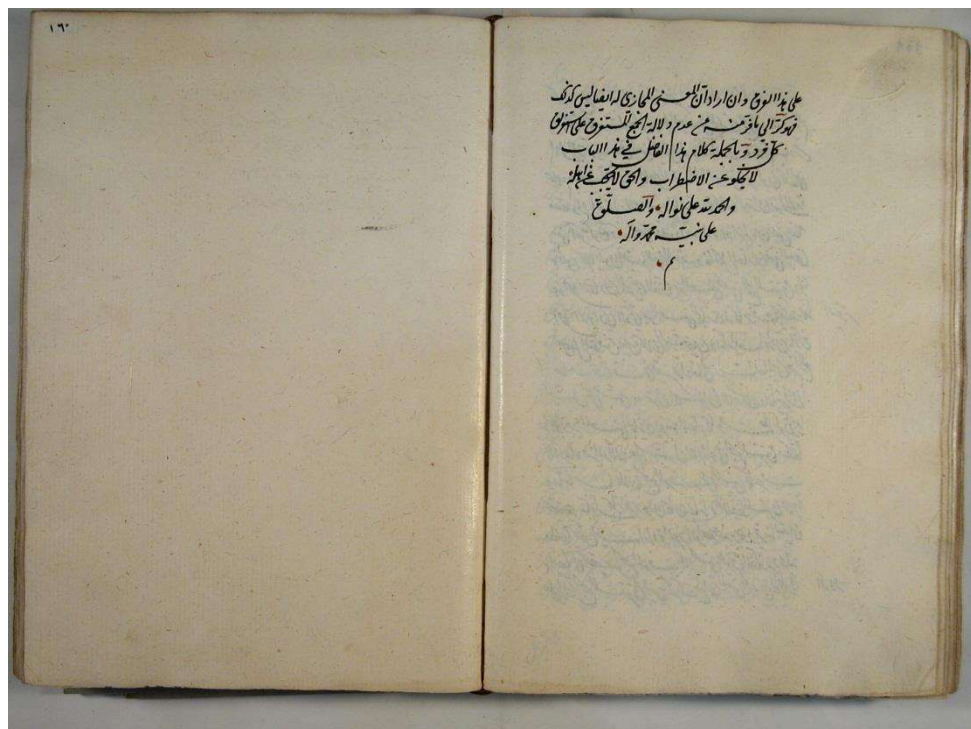 ١٦٠
على هذا الوجه وان اراد ان المعنى المجازى له ايضا ليس كذلك
فهو كرّ الى ما فرّ منه من عدم دلالة الجمع المستغرق على استغراق
كل فرد وبالجملة كلام هذا الفاضل فى هذا الباب
لا يخلو عن الاضطراب والحق لا يخفى على اهله
والحمد لله على نواله والصلوة
على نبيه محمد وآله
م